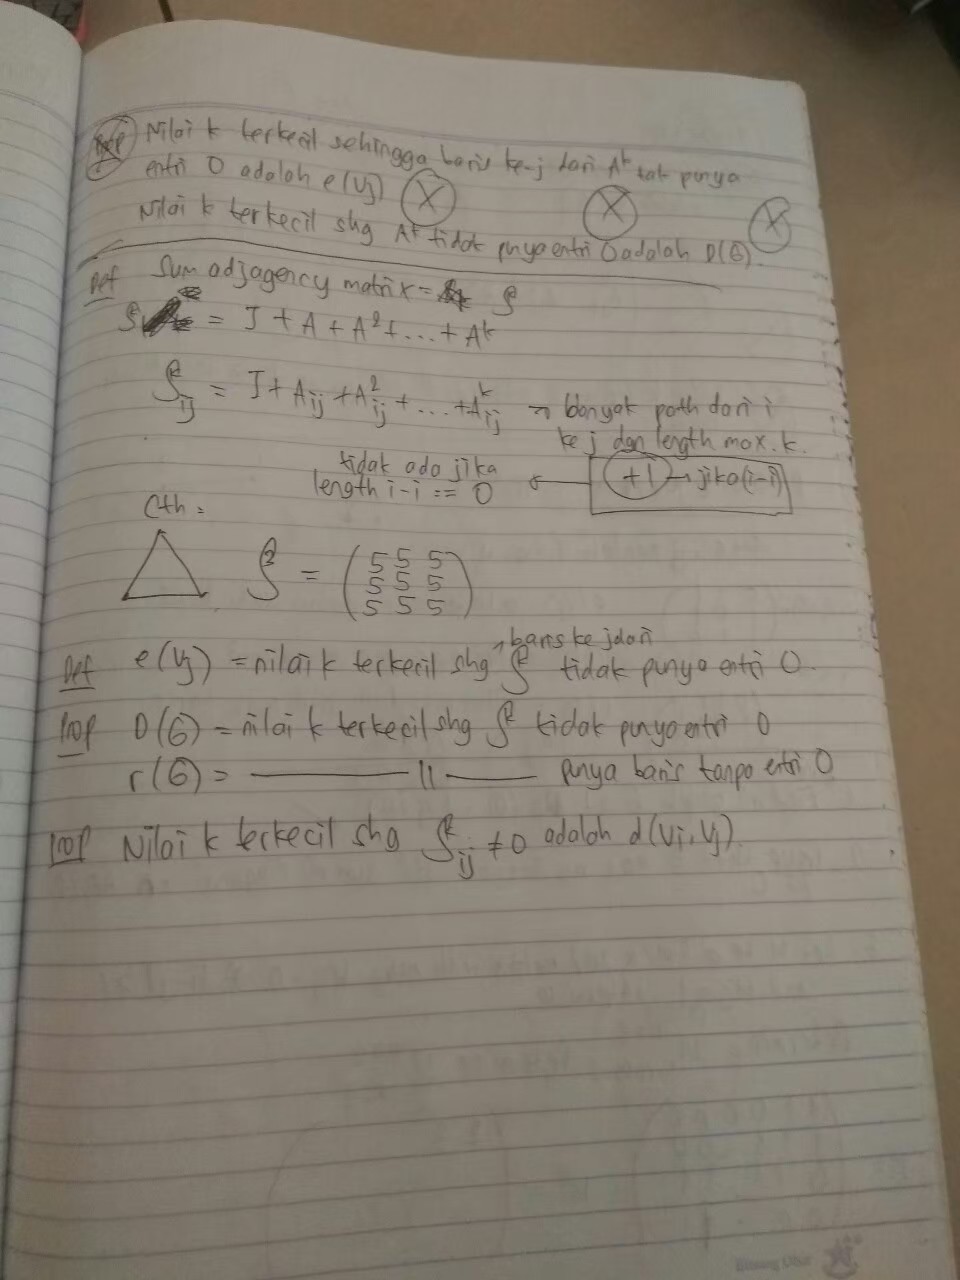 Prop Nilai k terkecil sehingga baris ke-j dari A^k tak punya
entri 0 adalah e(vj) X X X
Nilai k terkecil shg A^k tidak pnya entri 0 adalah D(G).
Def Sum adjagency matrix = S
S = I + A + A² + ... + A^k
S^k_ij = I + A_ij + A²_ij + ... + A^k_ij → banyak path dari i
ke j dgn length max. k.
tidak ada jika ← +1 → jika (i-i)
length i-i == 0
Cth =
S² = (5 5 5
5 5 5
5 5 5)
baris ke j dari
Def e(vj) = nilai k terkecil shg S^k tidak punya entri 0.
Prop D(G) = nilai k terkecil shg S^k tidak punya entri 0
r(G) = ——— 11 ——— punya baris tanpa entri 0
Prop Nilai k terkecil shg S^k_ij ≠ 0 adalah d(vi, vj).